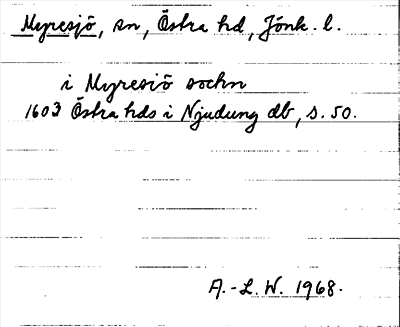 Myresjö, sn, Östra hd, Jönk. l.
i Myresiö sochn
1603 Östra hds i Njudung db, s. 50.
A.-L. W. 1968.